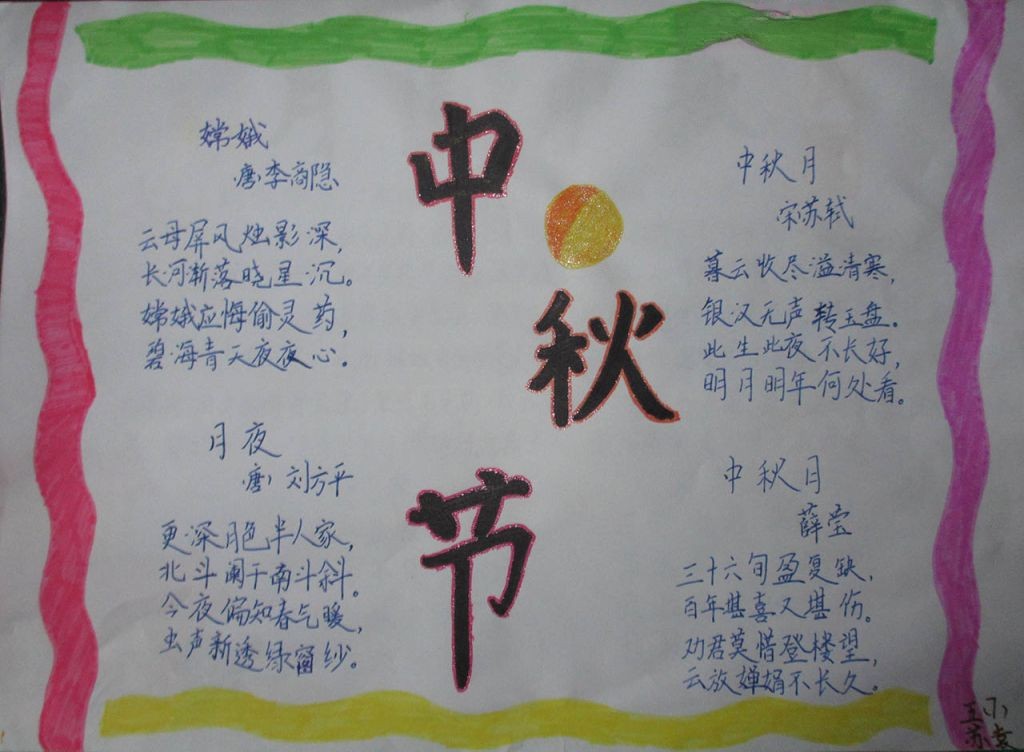 中秋节
嫦娥
(唐)李商隐
云母屏风烛影深，
长河渐落晓星沉。
嫦娥应悔偷灵药，
碧海青天夜夜心。
月夜
(唐) 刘方平
更深月色半人家，
北斗阑干南斗斜。
今夜偏知春气暖，
虫声新透绿窗纱。
中秋月
宋苏轼
暮云收尽溢清寒，
银汉无声转玉盘。
此生此夜不长好，
明月明年何处看。
中秋月
薛莹
三十六旬盈复缺，
百年堪喜又堪伤。
劝君莫惜登楼望，
云放婵娟不长久。